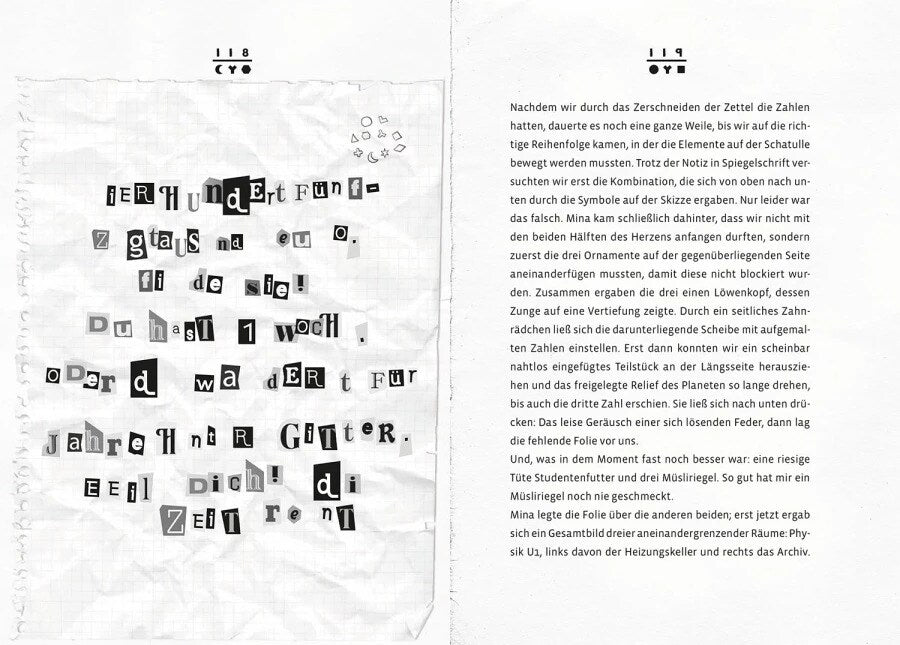 118
iER HunDErt Fünf-
Z gtaUS nd eu o.
fi de sie!
Du hasT 1 wocH .
oDer d wa dER t Für
JahrE H nt R GiTTeR.
EEil Dich! di
ZEiT re nT
119
Nachdem wir durch das Zerschneiden der Zettel die Zahlen
hatten, dauerte es noch eine ganze Weile, bis wir auf die rich-
tige Reihenfolge kamen, in der die Elemente auf der Schatulle
bewegt werden mussten. Trotz der Notiz in Spiegelschrift ver-
suchten wir erst die Kombination, die sich von oben nach un-
ten durch die Symbole auf der Skizze ergaben. Nur leider war
das falsch. Mina kam schließlich dahinter, dass wir nicht mit
den beiden Hälften des Herzens anfangen durften, sondern
zuerst die drei Ornamente auf der gegenüberliegenden Seite
aneinanderfügen mussten, damit diese nicht blockiert wur-
den. Zusammen ergaben die drei einen Löwenkopf, dessen
Zunge auf eine Vertiefung zeigte. Durch ein seitliches Zahn-
rädchen ließ sich die darunterliegende Scheibe mit aufgemal-
ten Zahlen einstellen. Erst dann konnten wir ein scheinbar
nahtlos eingefügtes Teilstück an der Längsseite herauszie-
hen und das freigelegte Relief des Planeten so lange drehen,
bis auch die dritte Zahl erschien. Sie ließ sich nach unten drü-
cken: Das leise Geräusch einer sich lösenden Feder, dann lag
die fehlende Folie vor uns.
Und, was in dem Moment fast noch besser war: eine riesige
Tüte Studentenfutter und drei Müsliriegel. So gut hat mir ein
Müsliriegel noch nie geschmeckt.
Mina legte die Folie über die anderen beiden; erst jetzt ergab
sich ein Gesamtbild dreier aneinandergrenzender Räume: Phy-
sik U1, links davon der Heizungskeller und rechts das Archiv.